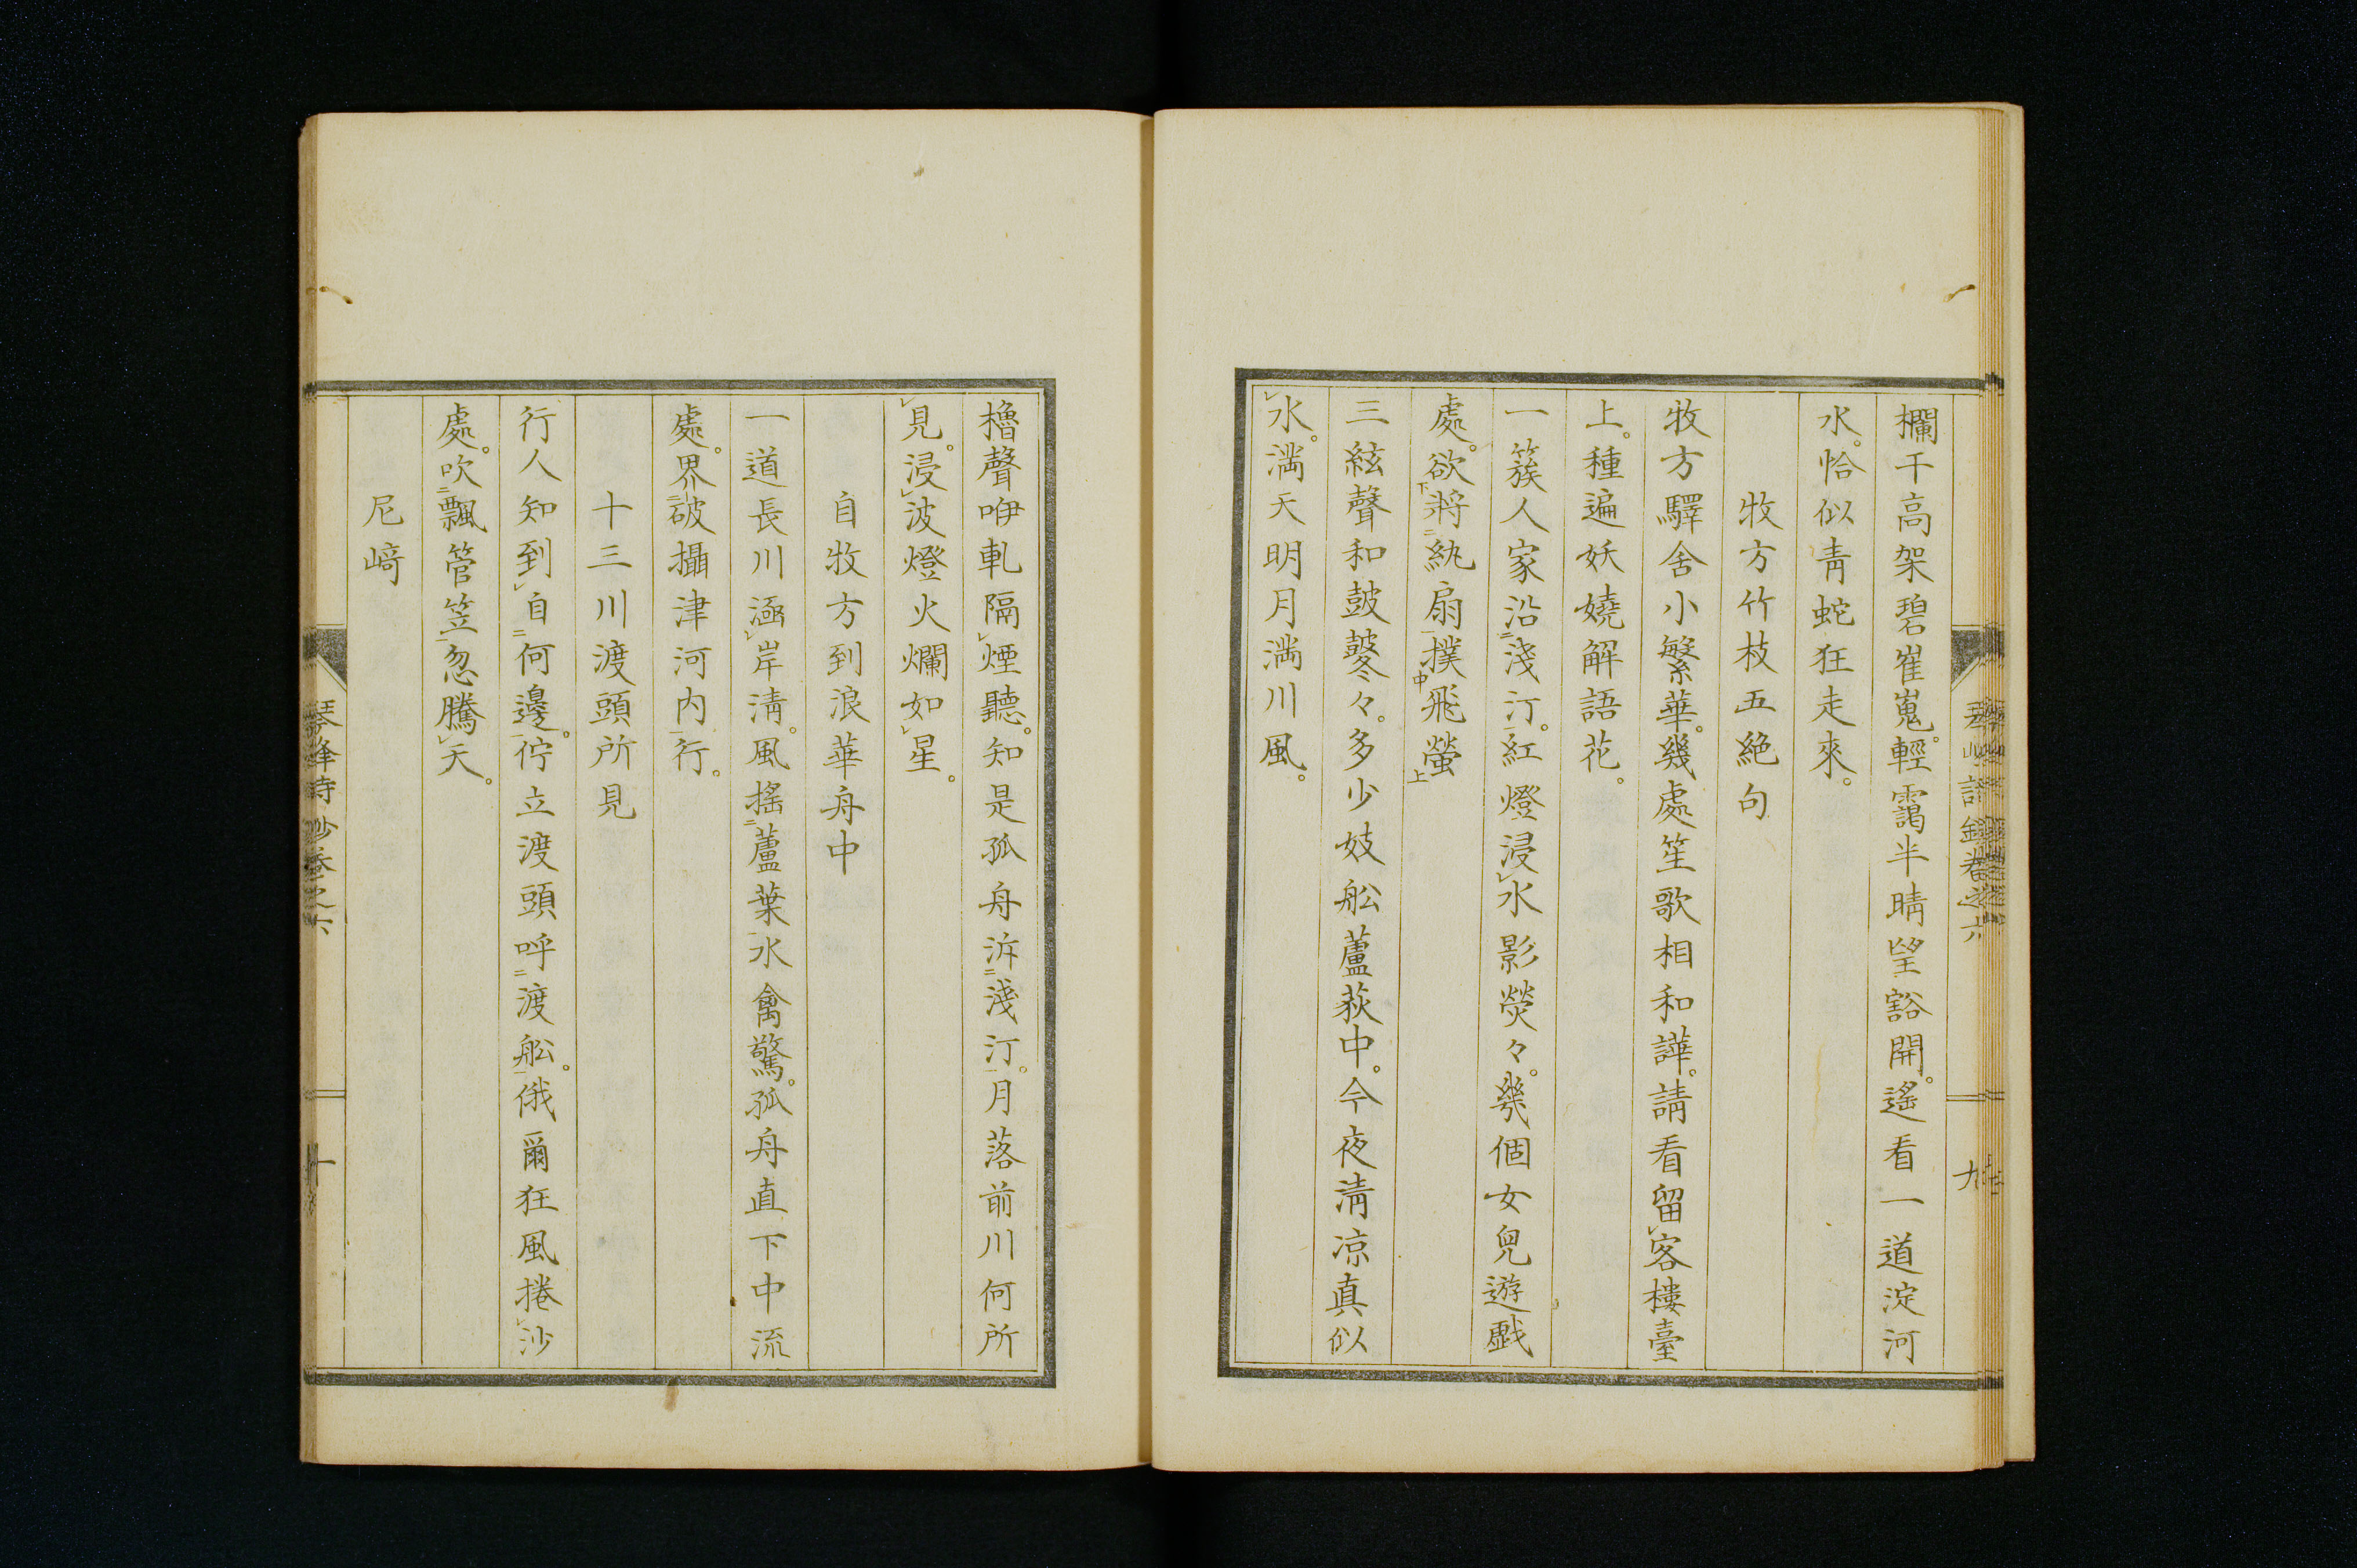 欄干高架碧崔嵬。輕靄半晴望豁開。遙看一道淀河
水。恰似靑蛇狂走來。
牧方竹枝五絶句
牧方驛舍小繁華。幾處笙歌相和譁。請看留レ客樓臺
上。種遍妖嬈解語花。
一簇人家沿二淺汀一。紅燈浸レ水影熒々。幾個女兒遊戲
處。欲下將二紈扇一撲中飛螢上
三絃聲和鼓鼕々。多少妓舩蘆荻中。今夜淸凉真似レ
水。満天明月満川風。
九
櫓聲咿軋隔レ煙聽。知是孤舟泝二淺汀一。月落前川何所レ
見。浸レ波燈火爛如レ星。
自牧方到浪華舟中
一道長川涵レ岸淸。風搖二蘆葉一水禽驚。孤舟直下中流
處。界二破攝津河内一行。
十三川渡頭所見
行人知到レ自二何邊一。佇立渡頭呼二渡舩一。俄爾狂風捲レ沙
處。吹二飄管笠一忽騰レ天。
尼﨑
琴峰詩鈔卷之六
十